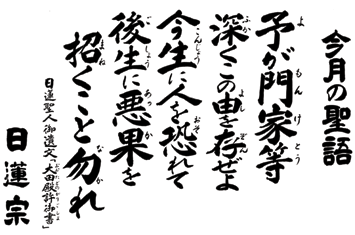 今月の聖語
予が門家等
深くこの由を存ぜよ
今生に人を恐れて
後生に悪果を
招くこと勿れ
日蓮聖人御遺文「大田殿許御書」
日蓮宗